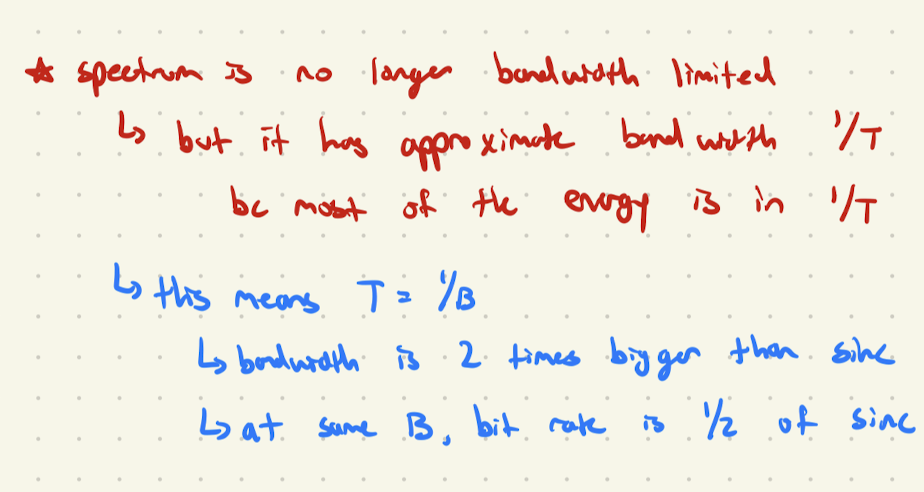 ☆ spectrum is no longer bandwidth limited
↳ but it has approximate bandwidth 1/T
bc most of the energy is in 1/T
↳ this means T = 1/B
↳ bandwidth is 2 times bigger than sinc
↳ at same B, bit rate is 1/2 of sinc